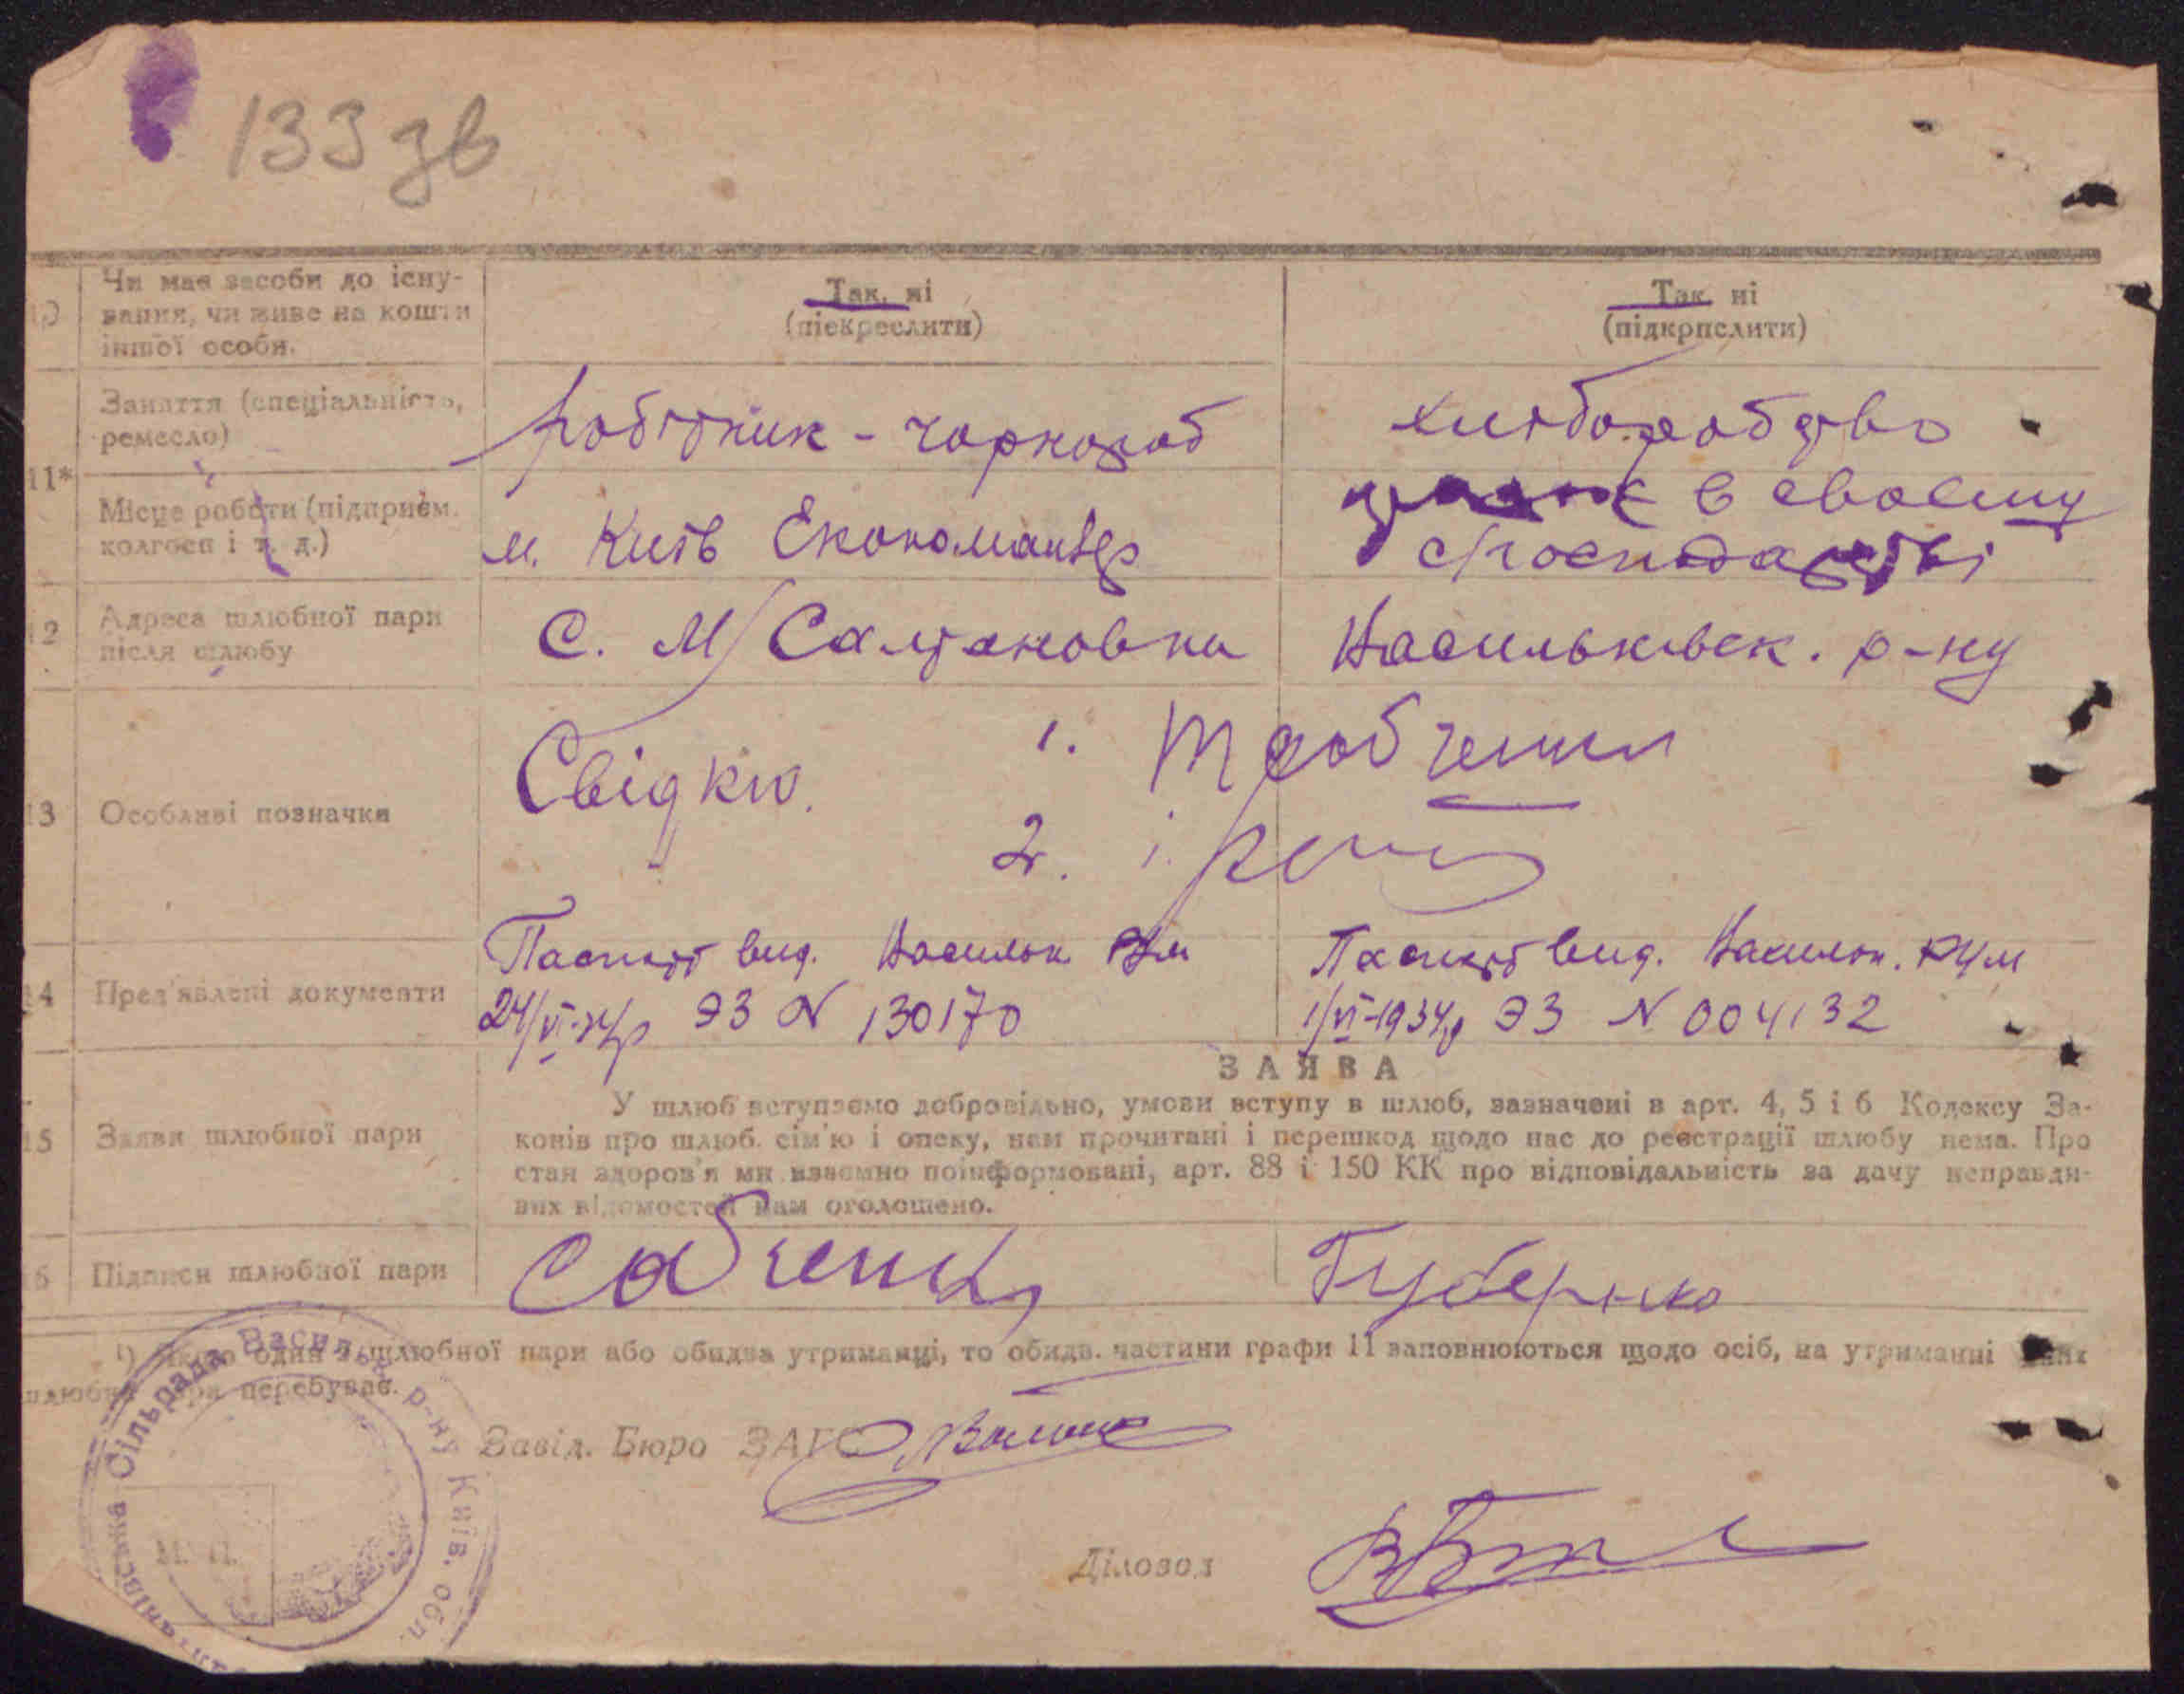 133 зв
10 Чи має засоби до існу-
вання, чи живе на кошти
іншої особи.
Так, ні
(піекреслити)
Так ні
(підкрпслити)
11* Заняття (спеціальність,
ремесло)
робітник - чорнороб
хліборобство
Місце роботи (підприєм.
колгосп і т. д.)
м. Київ
в своєму
господарстві
12 Адреса шлюбної пари
після шлюбу
С. М/Салтановка Васильківск. р-ну
13 Особливі позначки
Свідки. 1.
2. і.
14 Пред'явлені документи
Паспорт вид. Васильк. РУМ
24/VI-34р ЭЗ N 130170
Паспорт вид. Васильк. РУМ
1/VI-1934р ЭЗ N 004132
ЗАЯВА
15 Заяви шлюбної пари
У шлюб вступаємо добровільно, умови вступу в шлюб, зазначені в арт. 4, 5 і 6 Кодексу За-
конів про шлюб. сім'ю і опеку, нам прочитані і перешкод щодо нас до реєстрації шлюбу нема. Про
стан здоров'я ми взаємно поінформовані, арт. 88 і 150 КК про відповідальність за дачу неправди-
вих відомостей нам оголошено.
16 Підписи шлюбної пари
Собченко
Губернко
¹) Якщо один з шлюбної пари або обидва утриманці, то обидв. частини графи 11 заповнюються щодо осіб, на утриманні яких
шлюбна пара перебуває.
Завід. Бюро ЗАГС
Діловод
М. П.
Сільрада Васильк. р-ну Київ. обл.